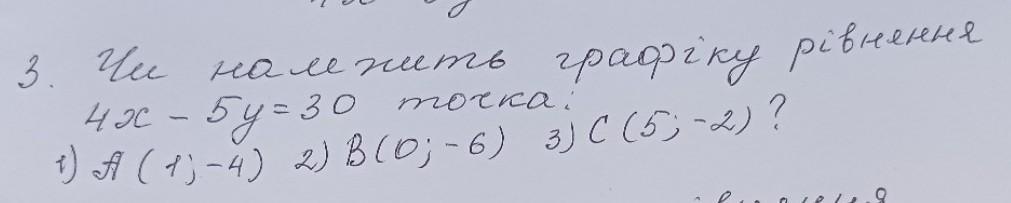 3. Чи належить графіку рівняння
4x - 5y = 30 точка:
1) A (1; -4) 2) B (0; -6) 3) C (5; -2)?